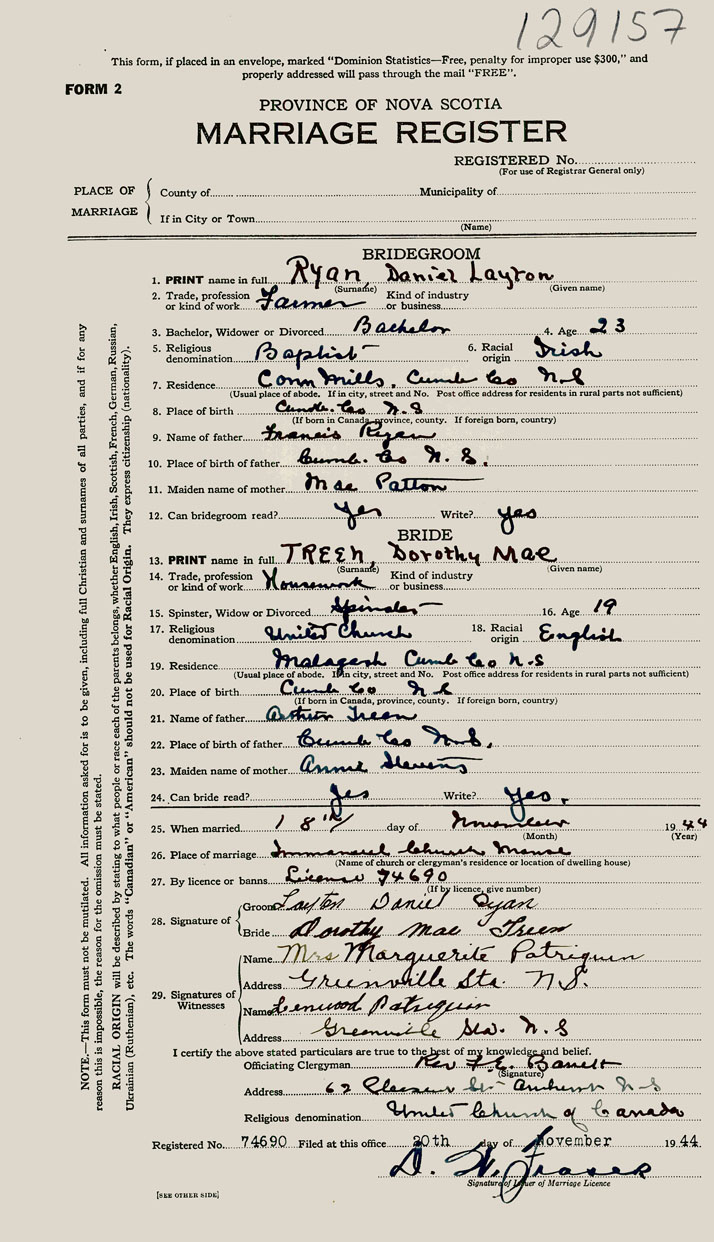 129157
This form, if placed in an envelope, marked "Dominion Statistics—Free, penalty for improper use $300," and
properly addressed will pass through the mail "FREE".
FORM 2
PROVINCE OF NOVA SCOTIA
MARRIAGE REGISTER
REGISTERED No.
(For use of Registrar General only)
PLACE OF MARRIAGE
County of Municipality of
If in City or Town
(Name)
BRIDEGROOM
1. PRINT name in full Ryan, Daniel Layton
(Surname) (Given name)
2. Trade, profession or kind of work Farmer Kind of industry or business
3. Bachelor, Widower or Divorced Bachelor 4. Age 23
5. Religious denomination Baptist 6. Racial origin Irish
7. Residence Conn Mills, Cumb Co N.S
(Usual place of abode. If in city, street and No. Post office address for residents in rural parts not sufficient)
8. Place of birth Cumb. Co N.S
(If born in Canada, province, county. If foreign born, country)
9. Name of father Francis Ryan
10. Place of birth of father Cumb. Co N.S.
11. Maiden name of mother Mae Patton
12. Can bridegroom read? Yes Write? yes
BRIDE
13. PRINT name in full TREEN, Dorothy Mae
(Surname) (Given name)
14. Trade, profession or kind of work Housework Kind of industry or business
15. Spinster, Widow or Divorced Spinster 16. Age 19
17. Religious denomination United Church 18. Racial origin English
19. Residence Malagash Cumb Co N.S
(Usual place of abode. If in city, street and No. Post office address for residents in rural parts not sufficient)
20. Place of birth Cumb Co N S
(If born in Canada, province, county. If foreign born, country)
21. Name of father Arthur Treen
22. Place of birth of father Cumb Co N.S.
23. Maiden name of mother Annie Stevens
24. Can bride read? Yes Write? Yes.
25. When married 18th day of November 1944
(Month) (Year)
26. Place of marriage Immanuel Church Manse
(Name of church or clergyman's residence or location of dwelling house)
27. By licence or banns License 74690
(If by licence, give number)
28. Signature of
Groom Layton Daniel Ryan
Bride Dorothy Mae Treen
29. Signatures of Witnesses
Name Mrs Marguerite Patriquin
Address Greenville Sta. N.S.
Name Lenwood Patriquin
Address Greenville Sta. N.S
I certify the above stated particulars are true to the best of my knowledge and belief.
Officiating Clergyman Rev F. E. Barrett
(Signature)
Address 62 Pleasant St Amherst N S
Religious denomination United Church of Canada
Registered No. 74690 Filed at this office 20th day of November 1944
D. W. Fraser
Signature of Issuer of Marriage Licence
[SEE OTHER SIDE]
NOTE.—This form must not be mutilated. All information asked for is to be given, including full Christian and surnames of all parties, and if for any
reason this is impossible, the reason for the omission must be stated.
RACIAL ORIGIN will be described by stating to what people or race each of the parents belongs, whether English, Irish, Scottish, French, German, Russian,
Ukrainian (Ruthenian), etc. The words "Canadian" or "American" should not be used for Racial Origin. They express citizenship (nationality).